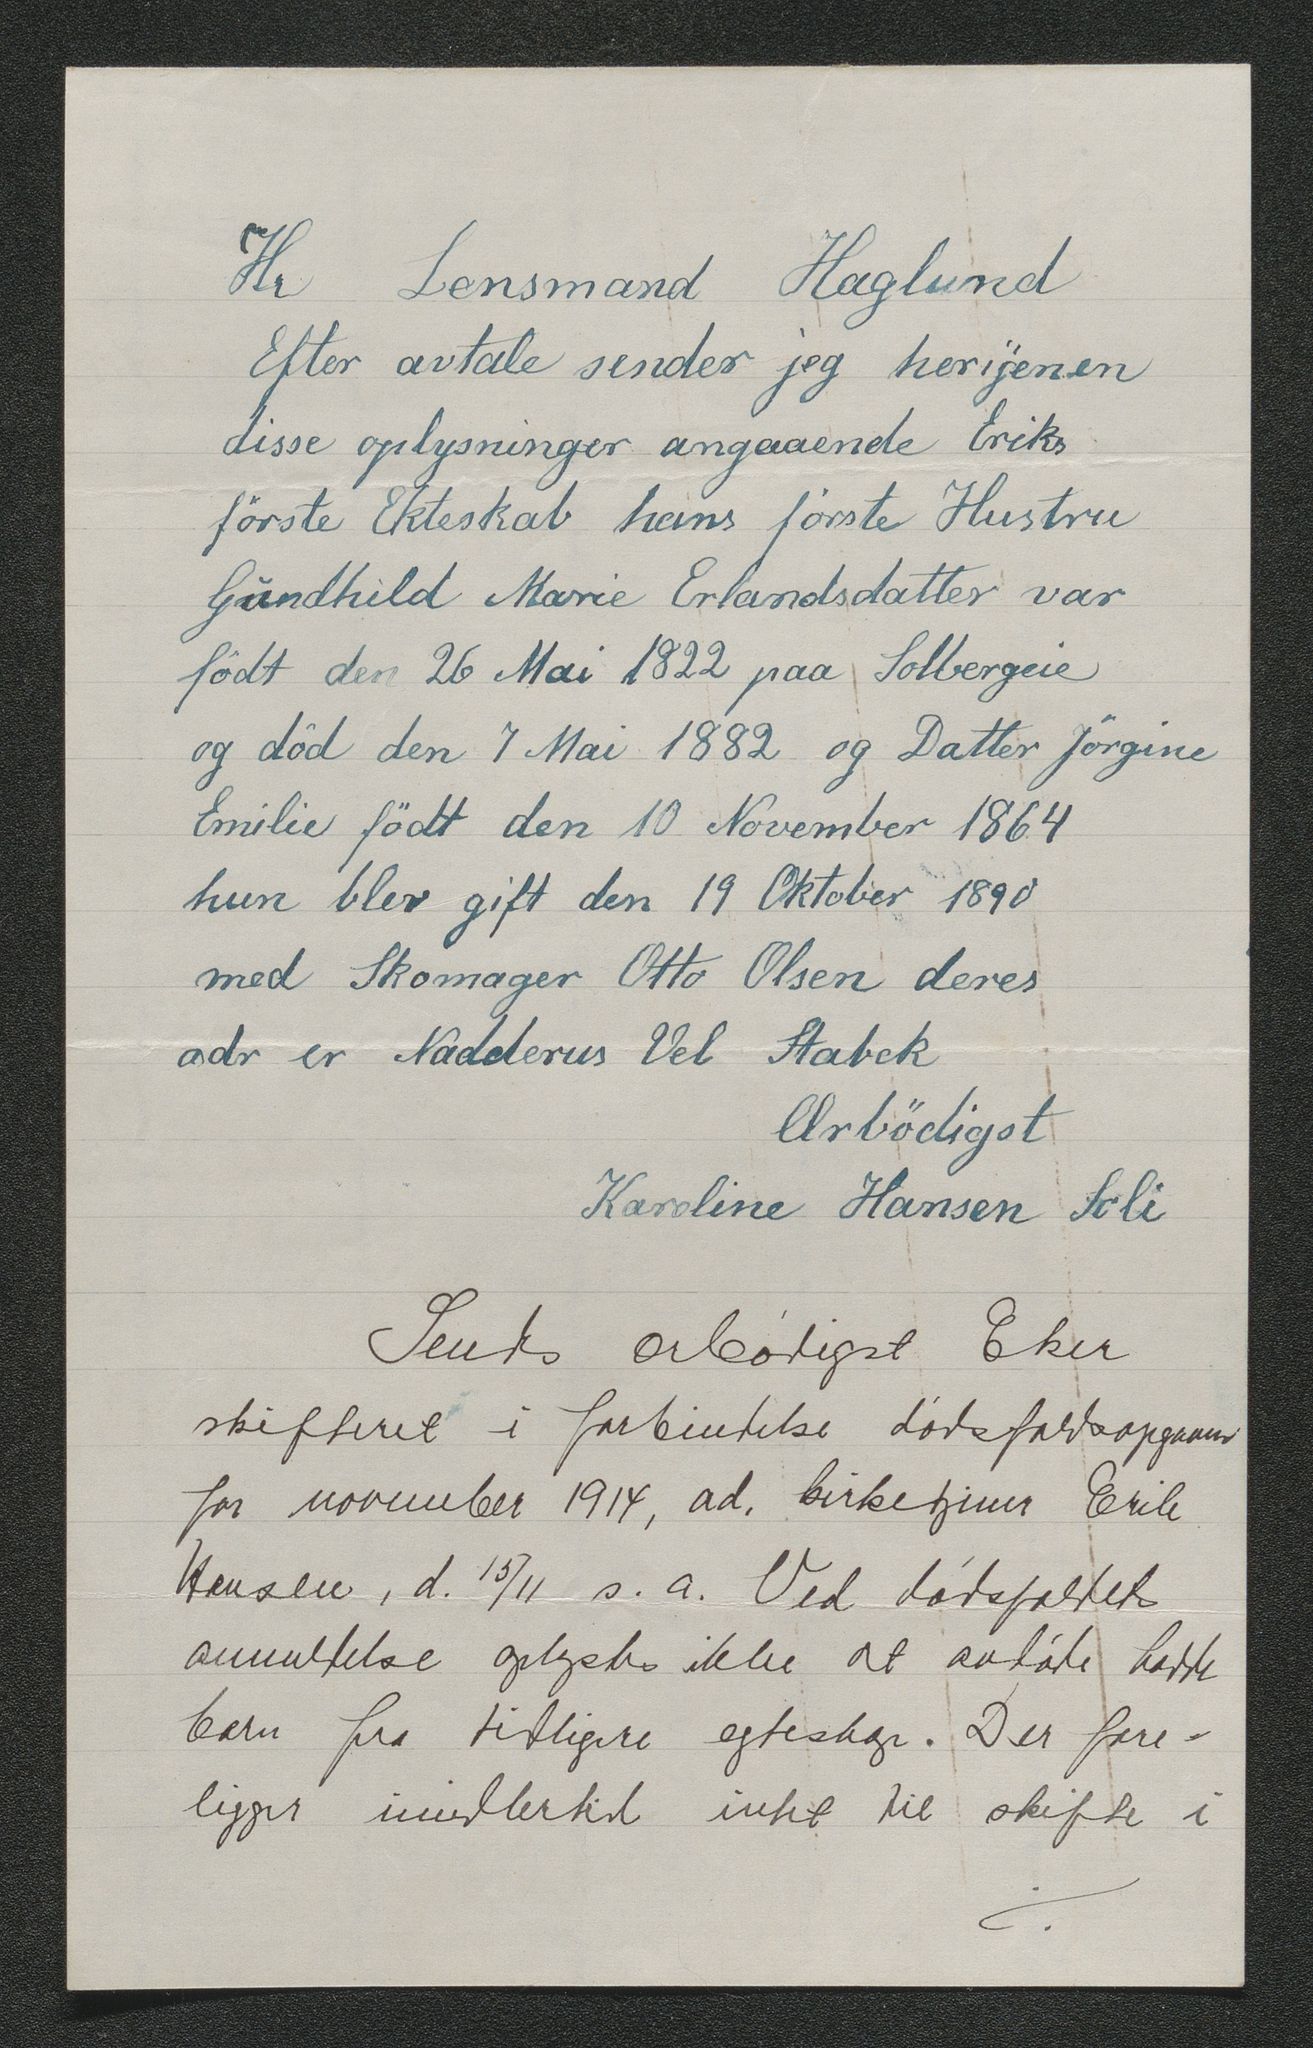 Hr Lensmand Haglund
Efter avtale sender jeg herijenen
disse oplysninger angaaende Eriks
förste Ekteskab hans förste Hustru
Gŭndhild Marie Erlandsdatter var
födt den 26 Mai 1822 paa Solbergeie
og död den 7 Mai 1882 og Datter Jörgine
Emilie födt den 10 November 1864
hun blev gift den 19 Oktober 1890
med Skomager Otto Olsen deres
adr er Nadderus Vel Stabek
Ærbödigst
Karoline Hansen Soli
Sendes ærbødigst Eker
skifteret i forbindelse dødsfaldsopgaven
for november 1914, ad. birketjener Erik
Hansen, d. 15/11 s. a. Ved dødsfaldets
anmeldelse oplystes ikke at avdøde hadde
barn fra tidligere egteskap. Der fore-
ligger imidlertid intet til skifte i
./.